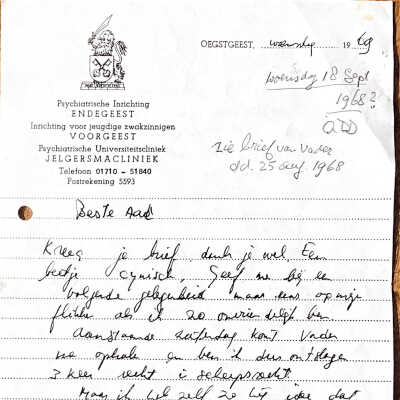 OEGSTGEEST, woensdag 1969
woensdag 18 Sept
1968?
add
zie brief van vader
dd. 25 aug 1968
Psychiatrische Inrichting
ENDEGEEST
Inrichting voor jeugdige zwakzinnigen
VOORGEEST
Psychiatrische Universiteitskliniek
JELGERSMACLINIEK
Telefoon 01710 – 51840
Postrekening 5593
Beste Aad
Kreeg je brief, dank je wel. Een
beetje cynisch. Geef me bij een
volgende gelegenheid maar eens op mijn
flikker als ik zo
Aanstaande zaterdag komt Vader
me ophalen en ben ik dus ontslagen
3 keer recht is scheepsrecht
Maar ik zelf zo dat